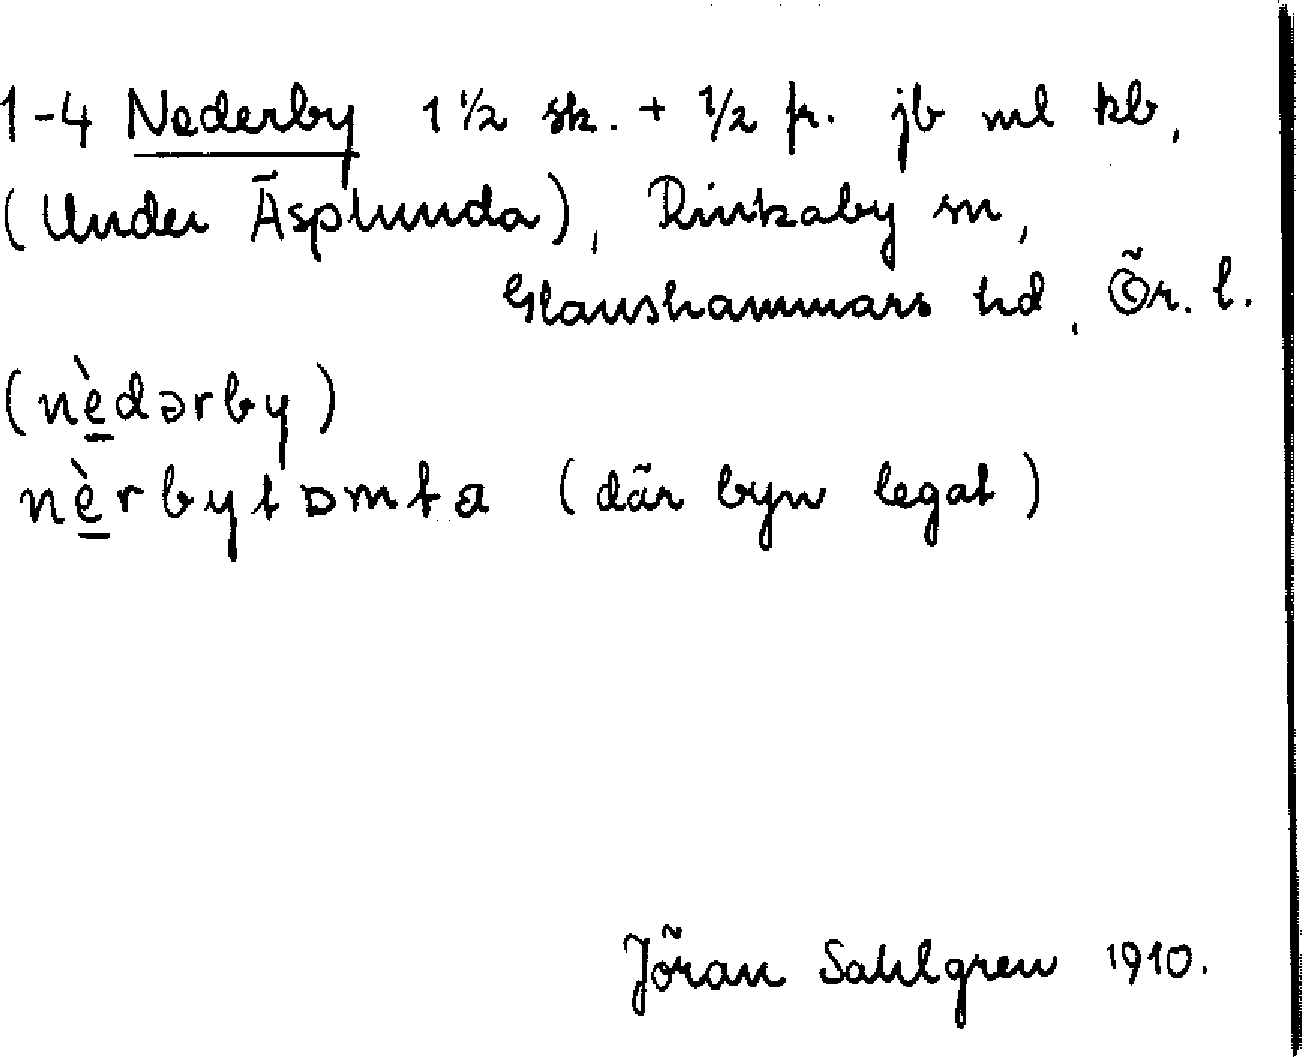 1-4 Nederby 1 1/2 sk. + 1/2 fr. jb ml kb,
(Under Äsplunda), Rinkaby sn,
Glanshammars hd, Ör. l.
(nèdərby)
nèrbytɒmta (där byn legat)
Jöran Sahlgren 1910.